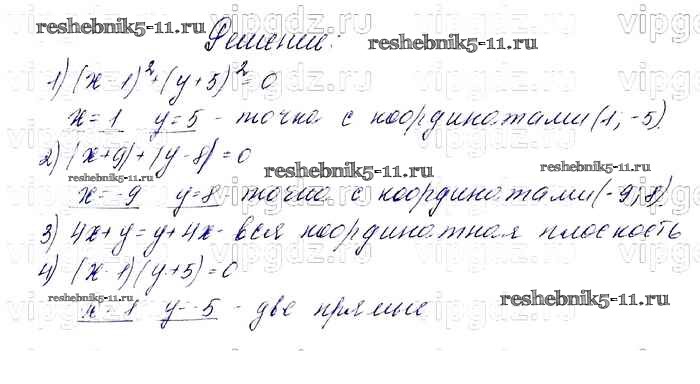 Решение:
1) (x-1)²+(y+5)²=0
x=1 y=5 - точка с координатами (1; -5).
2) |x+9|+|y-8|=0
x=-9 y=8 точка с координатами (-9; 8)
3) 4x+y=y+4x- вся координатная плоскость
4) (x-1)(y+5)=0
x=1 y=-5 - две прямые
reshebnik5-11.ru
reshebnik5-11.ru
reshebnik5-11.ru
reshebnik5-11.ru
reshebnik5-11.ru
reshebnik5-11.ru
reshebnik5-11.ru